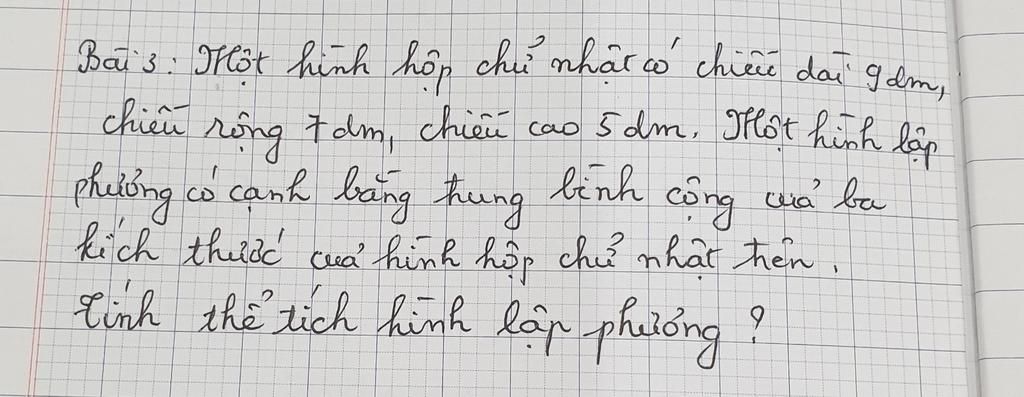 Bài 3: Một hình hộp chữ nhật có chiều dài 9dm,
chiều rộng 7dm, chiều cao 5dm. Một hình lập
phương có cạnh bằng trung bình cộng của ba
kích thước của hình hộp chữ nhật trên.
Tính thể tích hình lập phương?